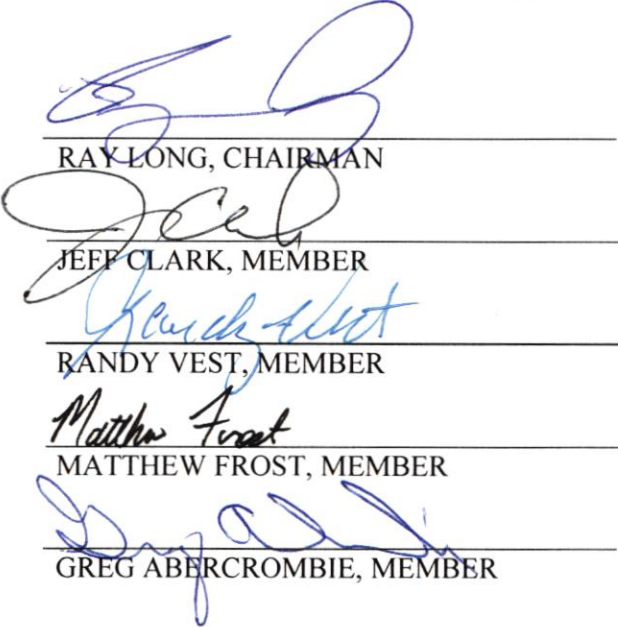 RAY LONG, CHAIRMAN
J Clark
JEFF CLARK, MEMBER
Randy Vest
RANDY VEST, MEMBER
Matthew Frost
MATTHEW FROST, MEMBER
GREG ABERCROMBIE, MEMBER